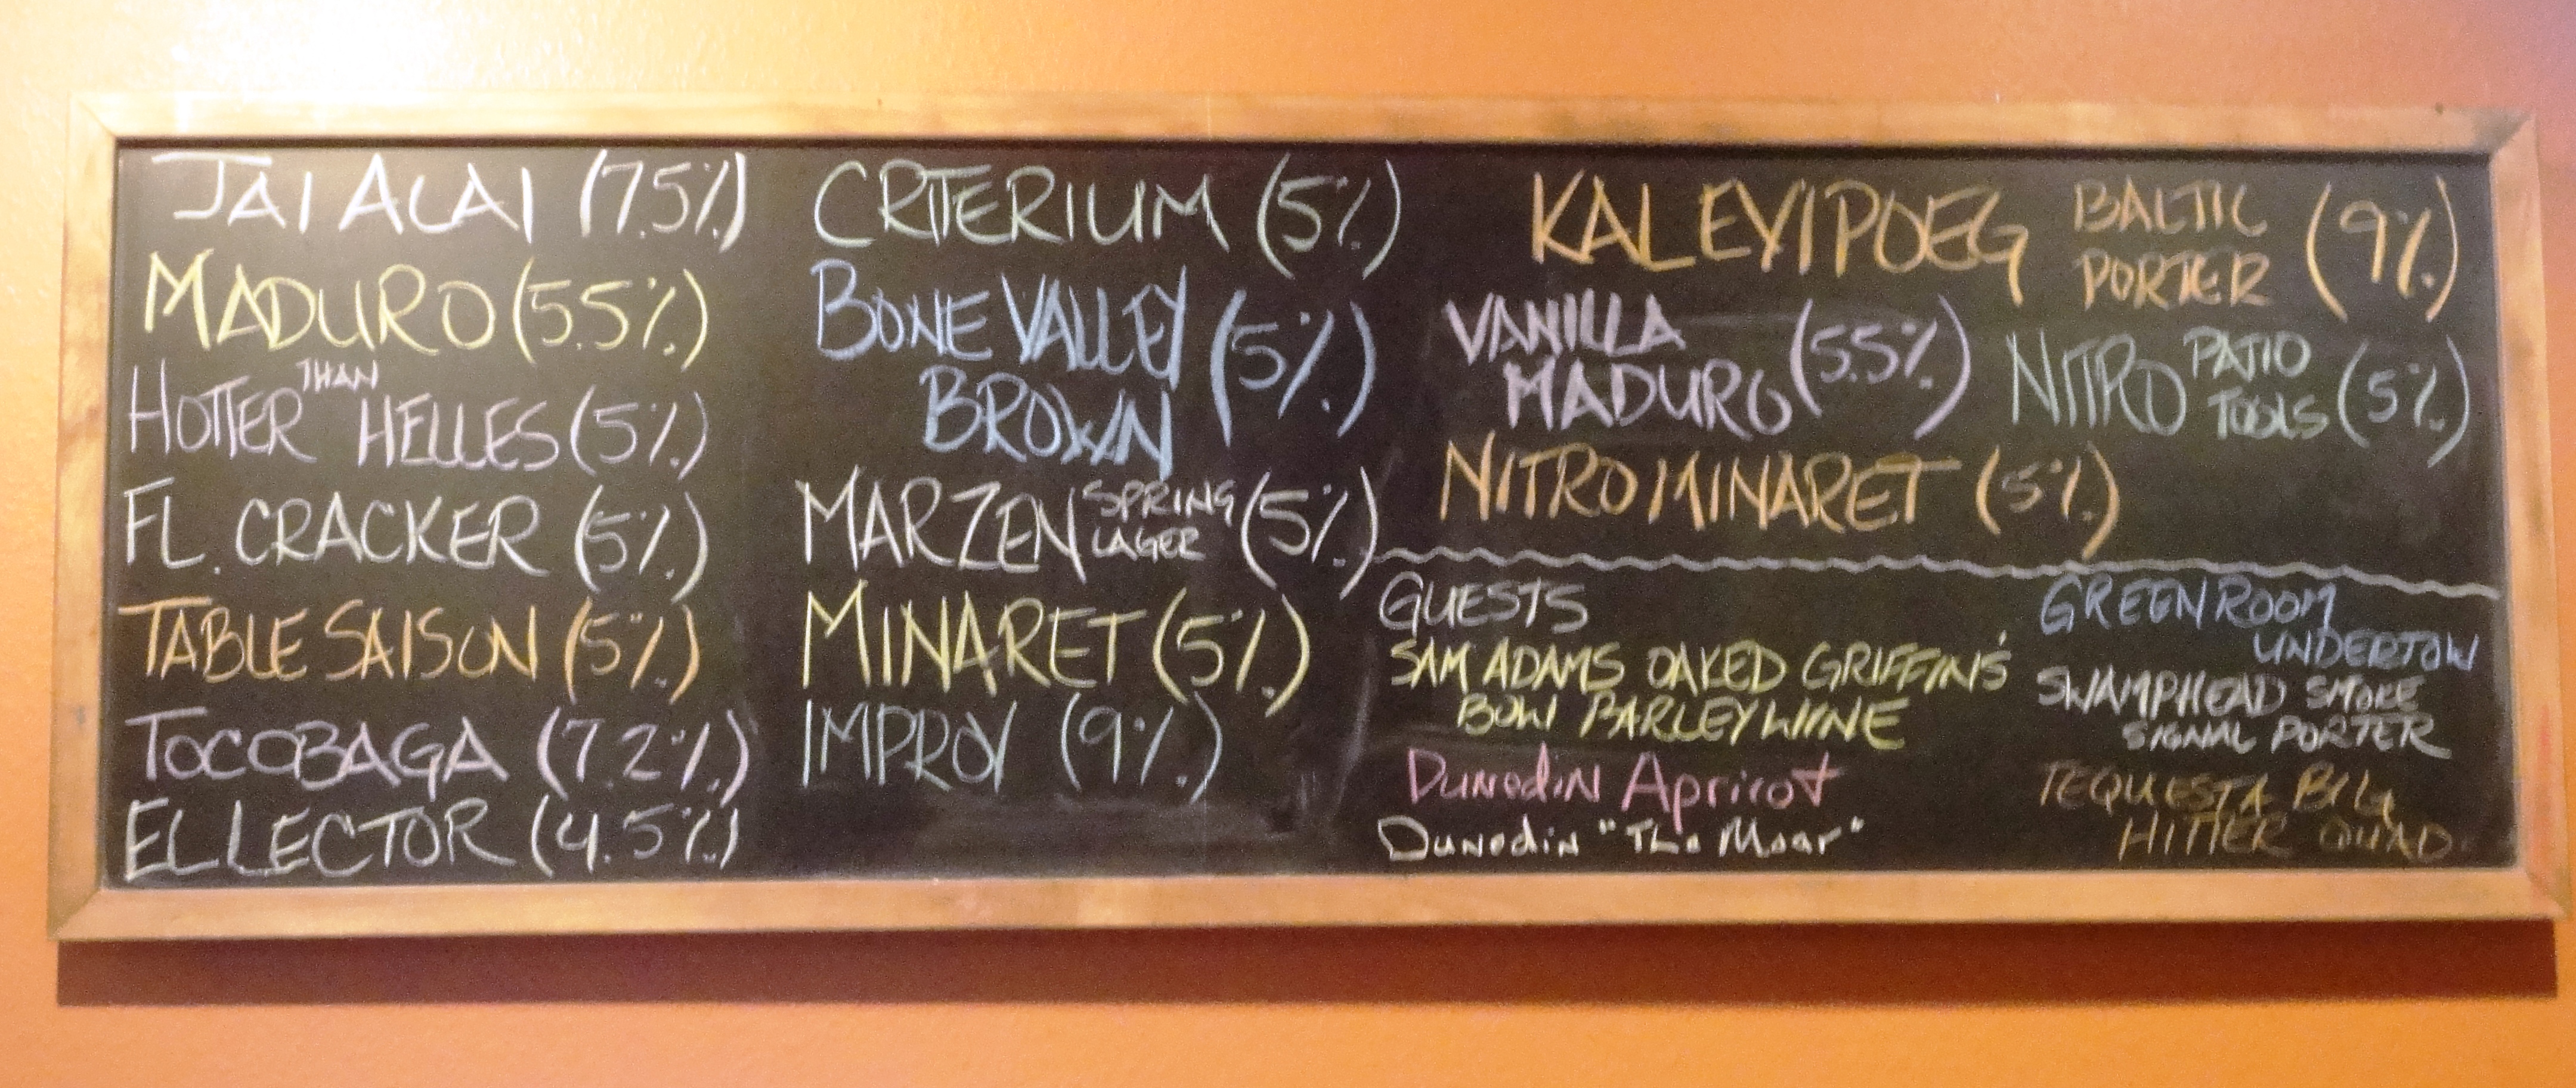 JAI ALAI (7.5%)
MADURO (5.5%)
HOTTER THAN HELLES (5%)
FL. CRACKER (5%)
TABLE SAISON (5%)
TOCOBAGA (7.2%)
EL LECTOR (4.5%)
CRITERIUM (5%)
BONE VALLEY
BROWN (5%)
MARZEN SPRING
LAGER (5%)
MINARET (5%)
IMPROV (9%)
KALEVIPOEG BALTIC
PORTER (9%)
VANILLA
MADURO (5.5%)
NITRO PATIO
TOOLS (5%)
NITRO MINARET (5%)
GUESTS
SAM ADAMS OAKED GRIFFIN'S
BOW BARLEYWINE
Dunedin Apricot
Dunedin "The Moar"
GREEN ROOM
UNDERTOW
SWAMPHEAD SMOKE
SIGNAL PORTER
TEQUESTA BIG
HITTER QUAD.